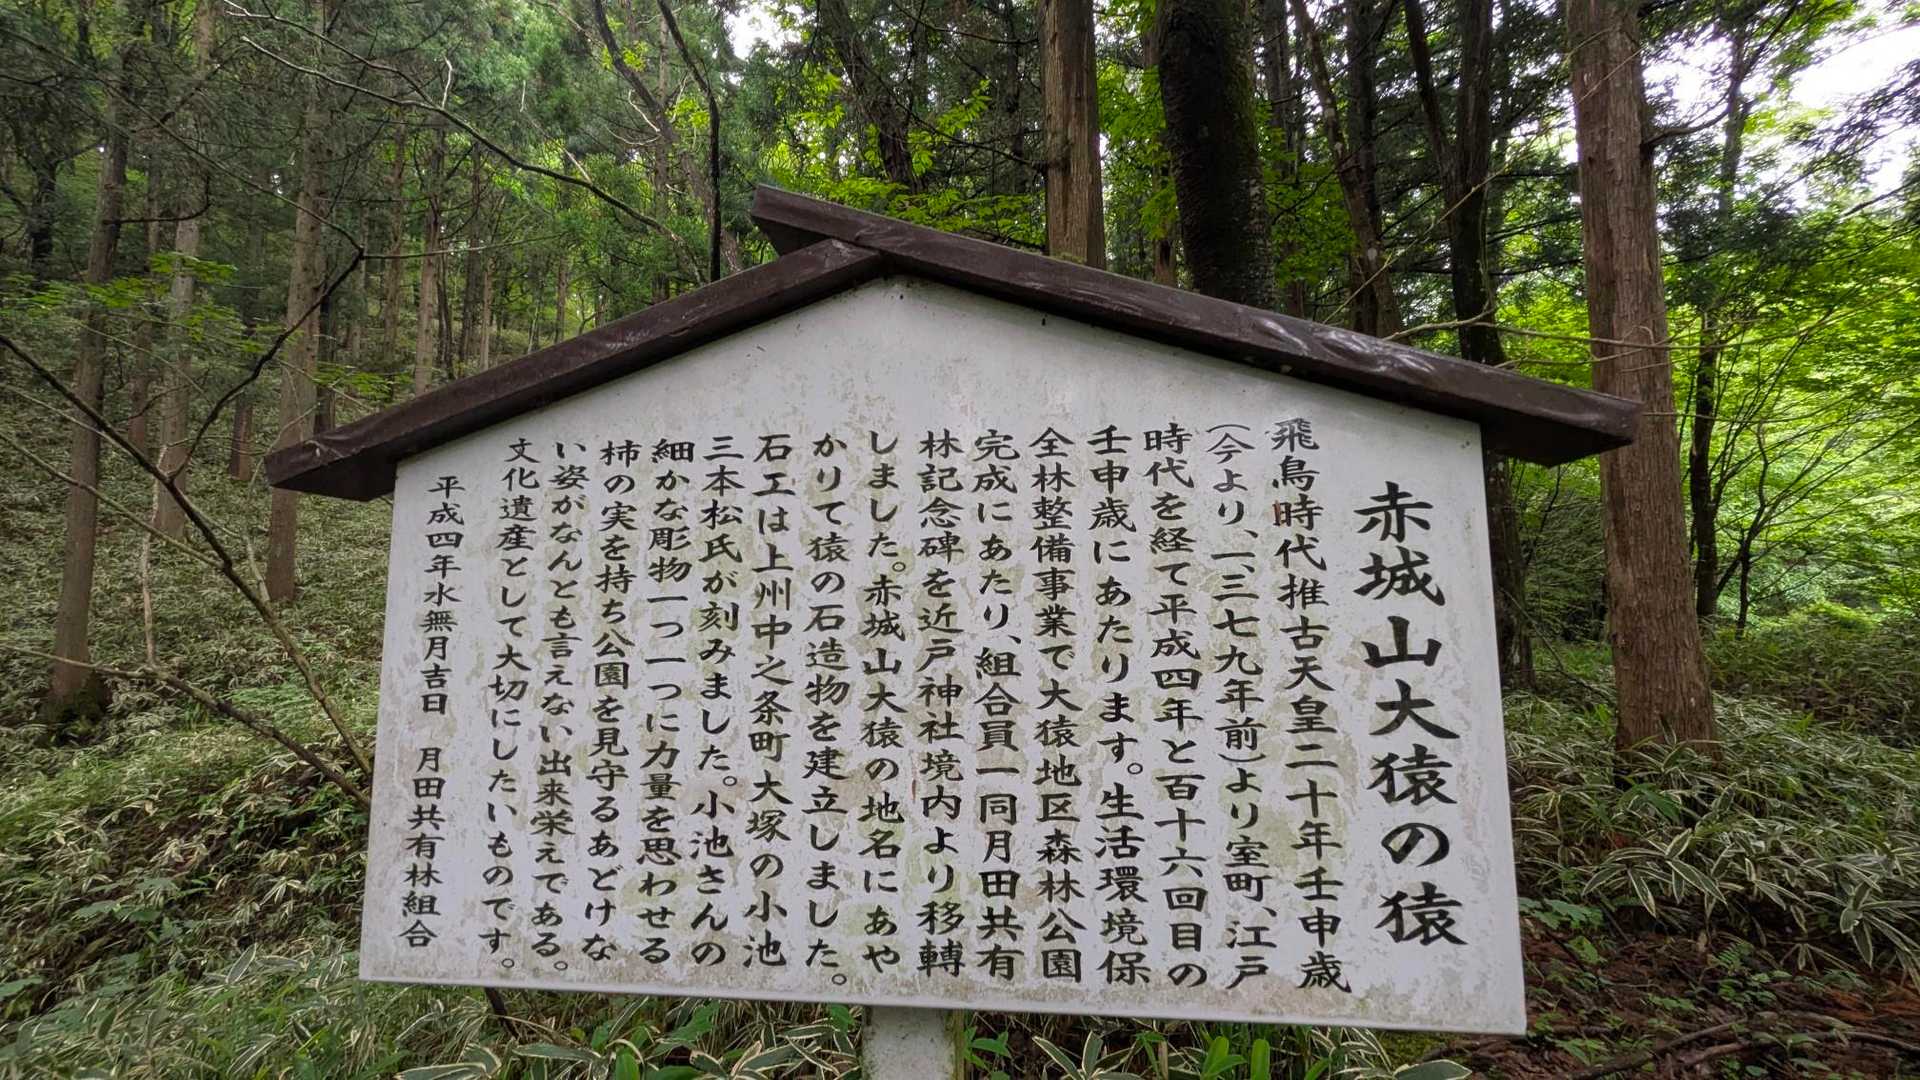 赤城山大猿の猿
飛鳥時代推古天皇二十年壬申歳
(今より、一、三七九年前)より室町、江戸
時代を経て平成四年と百十六回目の
壬申歳にあたります。生活環境保
全林整備事業で大猿地区森林公園
完成にあたり、組合員一同月田共有
林記念碑を近戸神社境内より移轉
しました。赤城山大猿の地名にあや
かりて猿の石造物を建立しました。
石工は上州中之条町大塚の小池
三本松氏が刻みました。小池さんの
細かな彫物一つ一つに力量を思わせる
柿の実を持ち公園を見守るあどけな
い姿がなんとも言えない出来栄えである。
文化遺産として大切にしたいものです。
平成四年水無月吉日 月田共有林組合